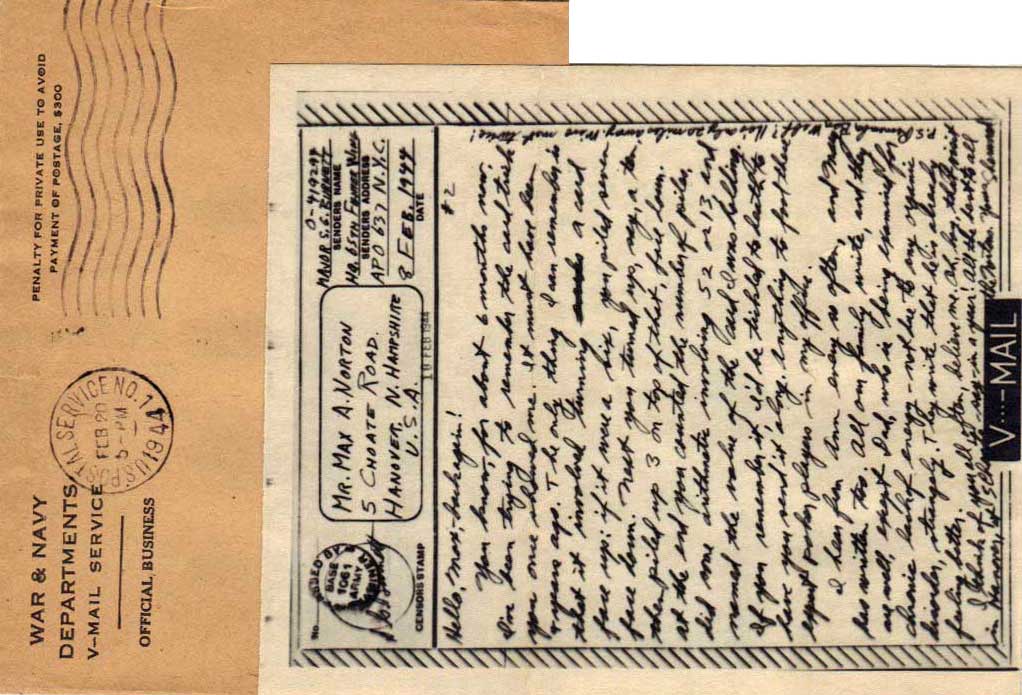 WAR & NAVY
DEPARTMENTS
V-MAIL SERVICE
OFFICIAL BUSINESS
U.S. POSTAL SERVICE NO. 1
FEB 20
5-PM
1944
PENALTY FOR PRIVATE USE TO AVOID
PAYMENT OF POSTAGE, $300
No.
BASE
1061
ARMY
CENSOR'S STAMP
MR. MAX A. NORTON
5 CHOATE ROAD.
HANOVER, N. HAMPSHIRE
U.S.A.
19 FEB 1944
O-419299
MAJOR
SENDER'S NAME
HQ. 65TH FIGHTER WING
SENDER'S ADDRESS
APO 637 N.Y.C.
8 FEB. 1944
DATE
#2
Hello, Max, - back again!
You know, for about 6 months now,
I've been trying to remember the card trick
you once showed me. It must have been
years ago. The only thing I can remember is
that it involved turning a card
face up; if it was a six, you piled seven
face down. Next you turned up, say, a ten,
then piled up 3 on top of that, face down.
at the end you counted the number of piles,
did some arithmetic involving 52 or 13 and
named the value of the card I was holding.
If you remember it, I'd be tickled to death to
have you send it along. Anything to fool these
expert poker players in my office.
I hear from Ann every so often, and Mary
has written too. All our family write, and they
are well, except Dad, who is being examined for
chronic lack of energy - not due to my again
feeling better.
I think of you all often, believe me,
in Hanover,
P.S. Remember Welf? He's only 20 miles away. We've met twice!
V···—MAIL